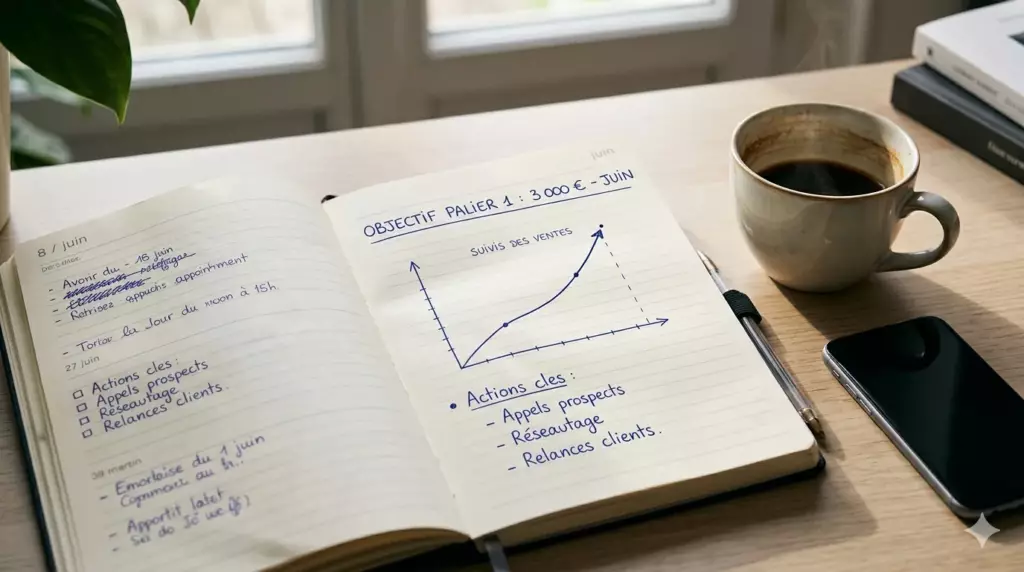 8 / juin
- Avoir du - 18 juin
- appointment
- Tortoz la Jour du noon à 15h.
27 juin
Actions cles :
Appels prospects
Réseautage
Relances clients.
du 1 juin
- Apportit
juin
OBJECTIF PALIER 1 : 3 000 € - JUIN
SUIVIS DES VENTES
• Actions cles :
- Appels prospects
- Réseautage
- Relances clients.